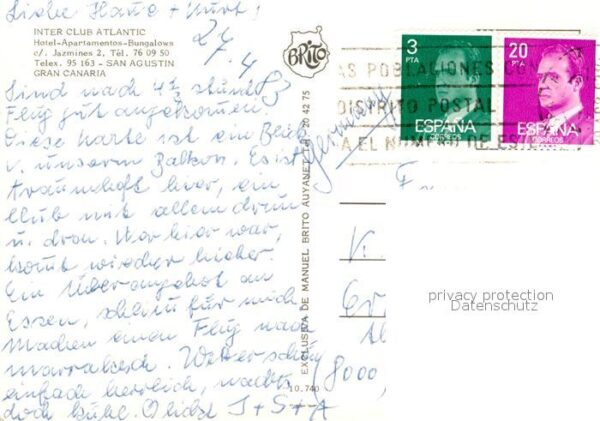 Liebe Hanne + Kurt!
INTER CLUB ATLANTIC
Hotel-Apartamentos-Bungalows
c/. Jazmines 2, Tél. 76 09 50
Telex. 95 163 - SAN AGUSTIN
GRAN CANARIA
27.4
Sind nach 4½ Stunden
Flug gut angekommen
Diese Karte ist ein Blick
v. unserm Balkon. Es ist
traumhaft hier, ein
Club mit allem drum
u. dran. Wer hier war,
kommt wieder hierher.
Ein Überangebot an
Essen, schlimm für mich
Machen einen Flug nach
Marrakesch. Wetter schön
einfach herrlich, nachts
doch kühl. Herzlichst J+S+A
BRITO
EXCLUSIVA DE MANUEL BRITO AUYANET
20 42 75
10.740
3
PTA
ESPAÑA
CORREOS
20
PTA
ESPAÑA
CORREOS
AS POBLACIONES CON
DISTRITO POSTAL
A EL NUMERO DE ESTE
Germany
F
V.
(8000)
privacy protection
Datenschutz